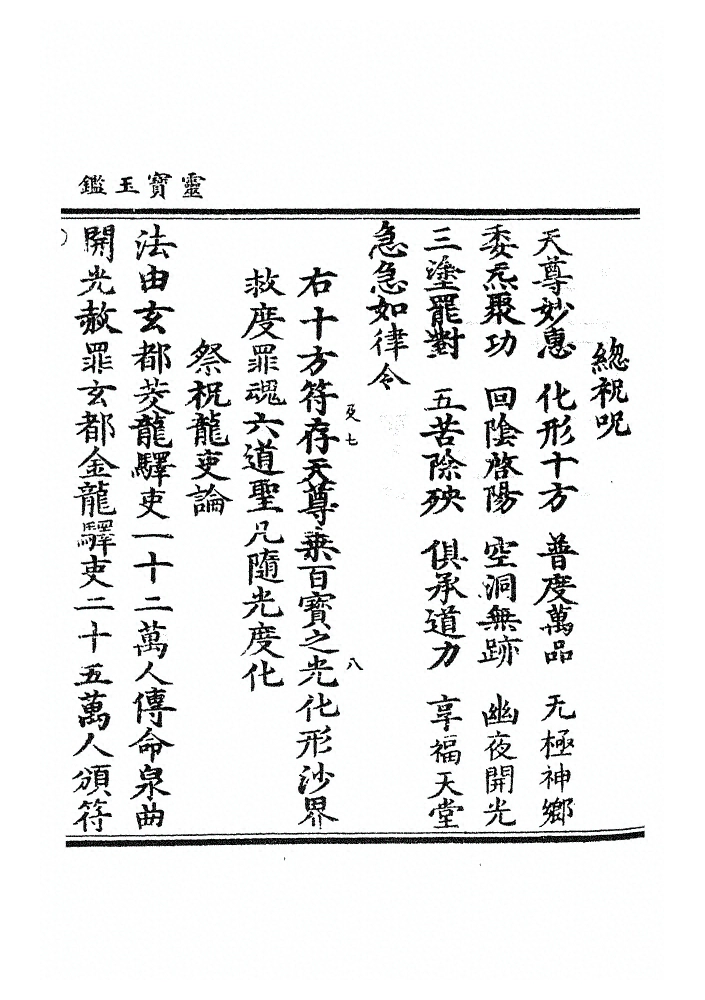 靈寶玉鑑
緫祝呪
天尊妙惠 化形十方 普度萬品 无極神鄉
委炁聚功 回陰啓陽 空洞無跡 幽夜開光
三塗罷對 五苦除殃 俱承道力 享福天堂
急急如律令
右十方符存天尊乗百寶之光化形沙界
七 八
救度罪魂六道聖凡隨光度化
祭祝龍吏論
法由玄都茭龍驛吏一十二萬人傳命泉曲
開光赦罪玄都金龍驛吏二十五萬人頒符